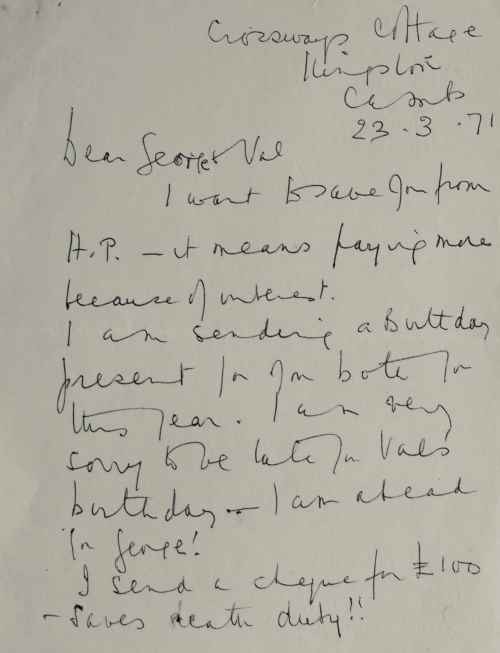 Crossways Cottage
Kingston
Cants
23.3.71
Dear George & Val
I want to save you from
H.P. – it means paying more
because of interest.
I am sending a Birthday
present for you both for
this year. I am very
sorry to be late for Val's
birthday – I am ahead
for George!
I send a cheque for £100
– saves death duty!!